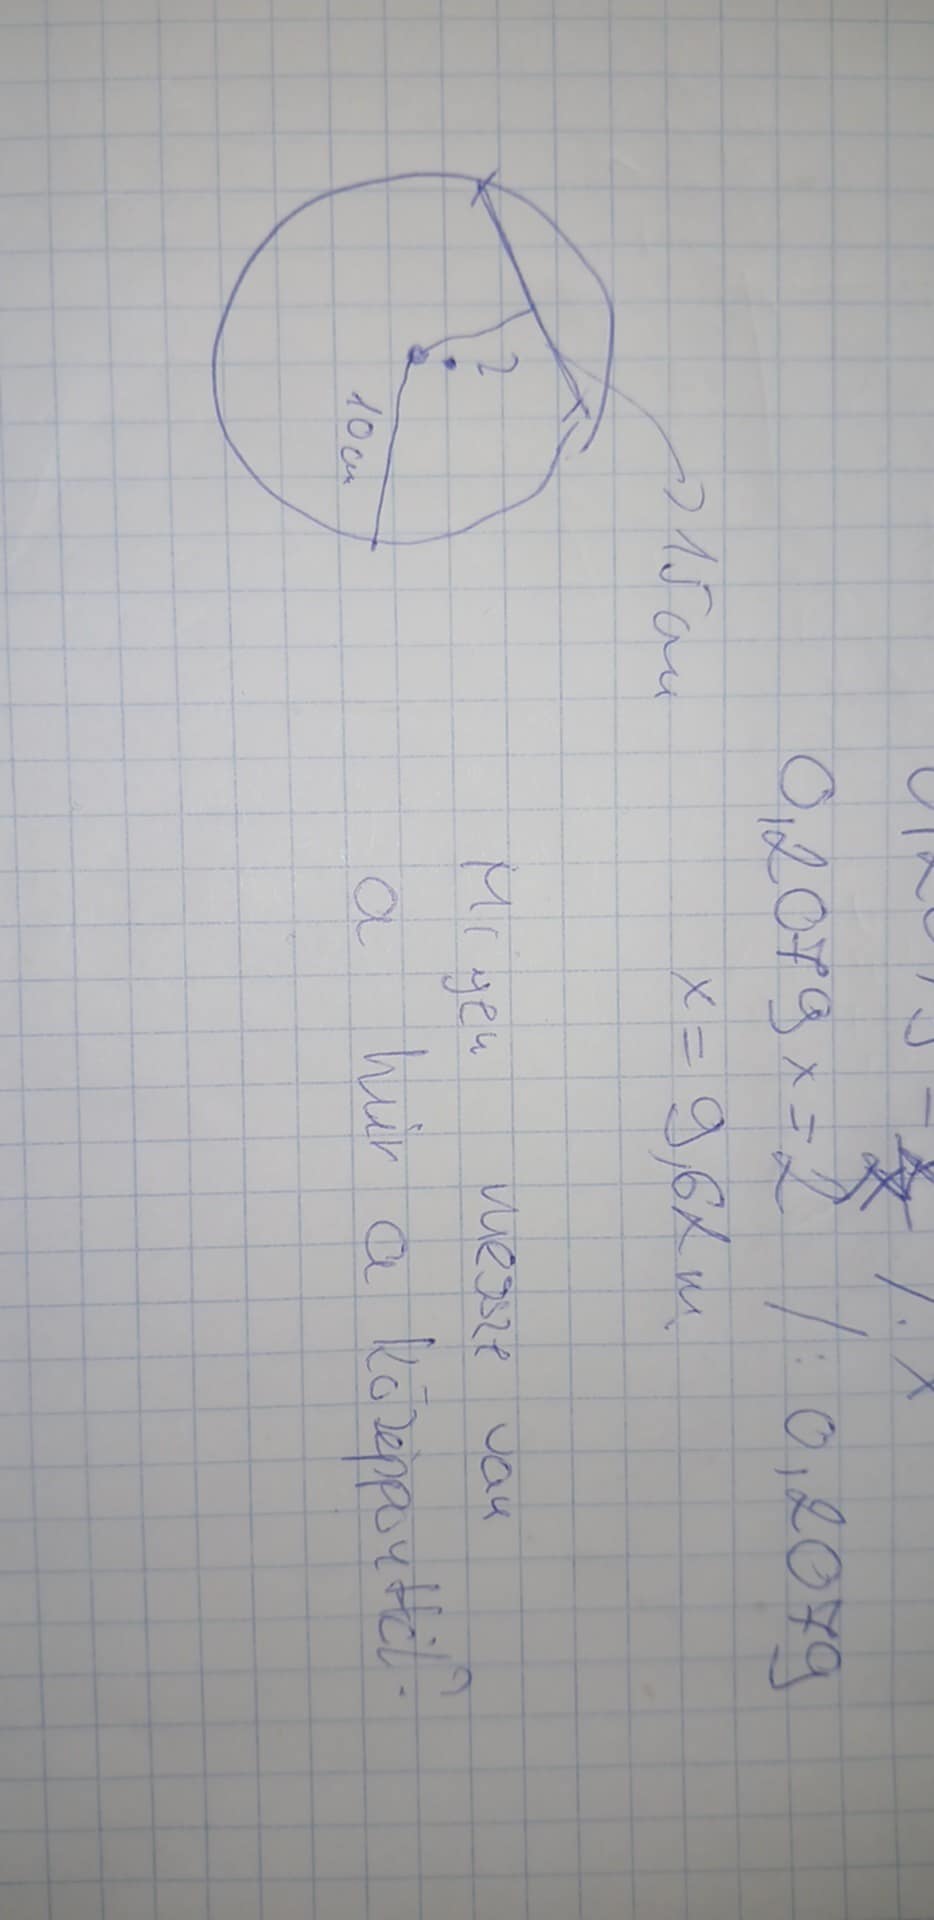 0,2079 x = 2 / : 0,2079
x = 9,62 m
15 cm
?
10 cm
Milyen messze van
a húr a középponttól?